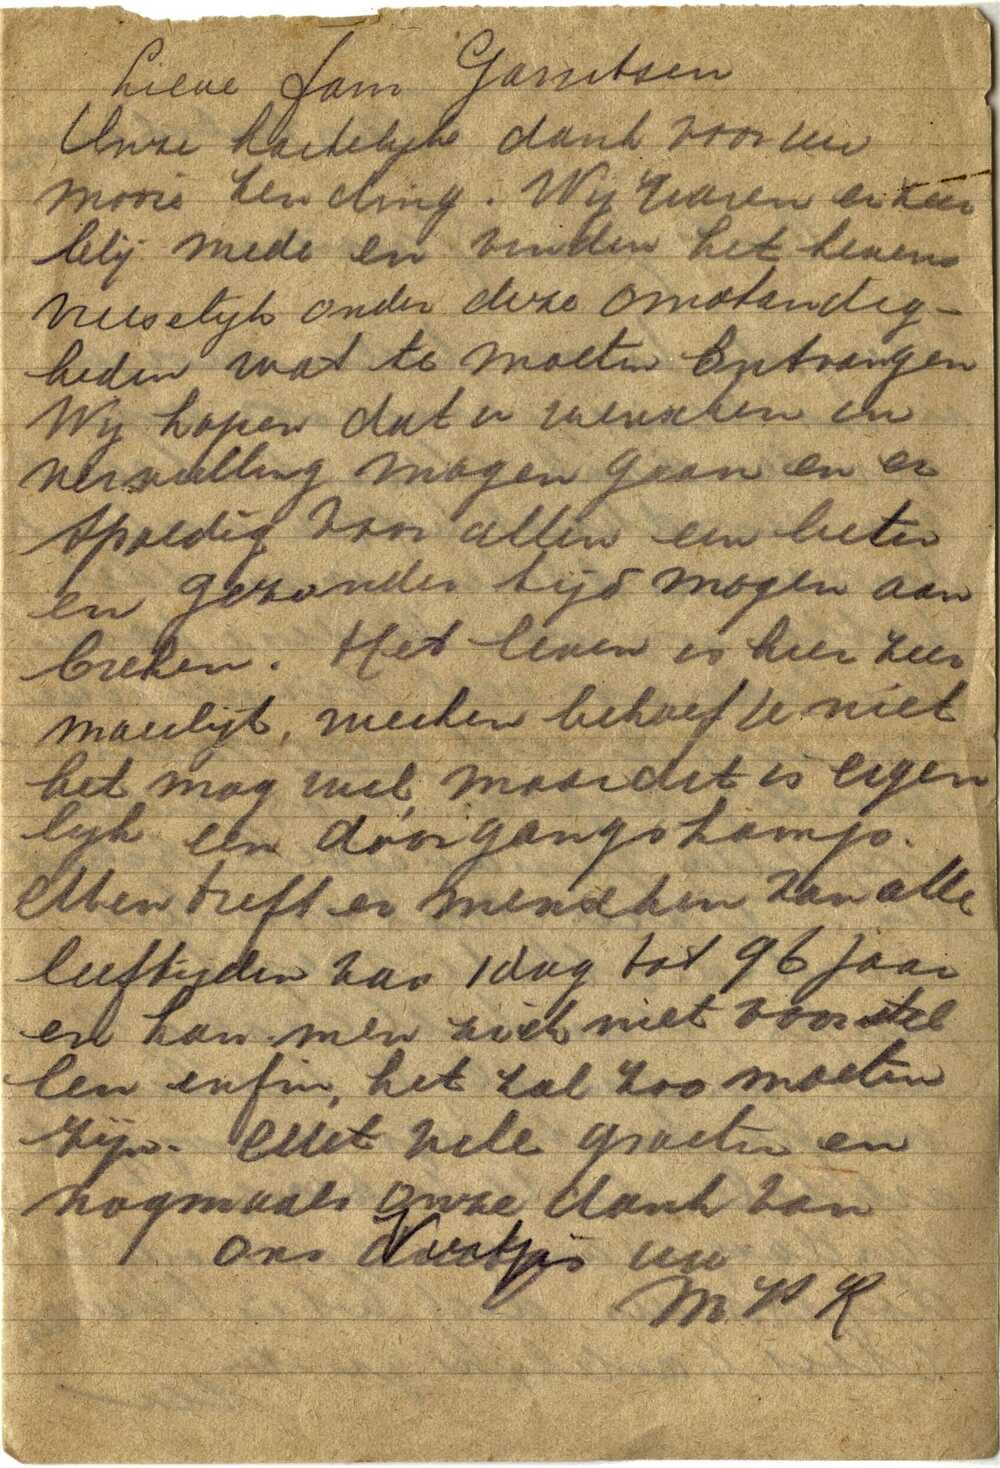 Lieve Fam Garritsen
Onze hartelijk dank voor uw
mooie zending. Wij waren er zeer
blij mede en vinden het tevens
vreeselijk onder deze omstandig-
heden wat te moeten ontvangen
Wij hopen dat u wenschen in
vervulling mogen gaan en er
spoedig voor allen een beter
en gezonder tijd mogen aan
breken. Het leven is hier zeer
moeilijk, werken behoef je niet
het mag wel, maar dit is eigen
lijk een doorgangskamp.
Men treft er menschen van alle
leeftijden van 1 dag tot 96 jaar
en kan men zich niet voorstel
len enfin, het zal zoo moeten
zijn. Met vele groeten en
nogmaals onze dank van
ons uw
M K